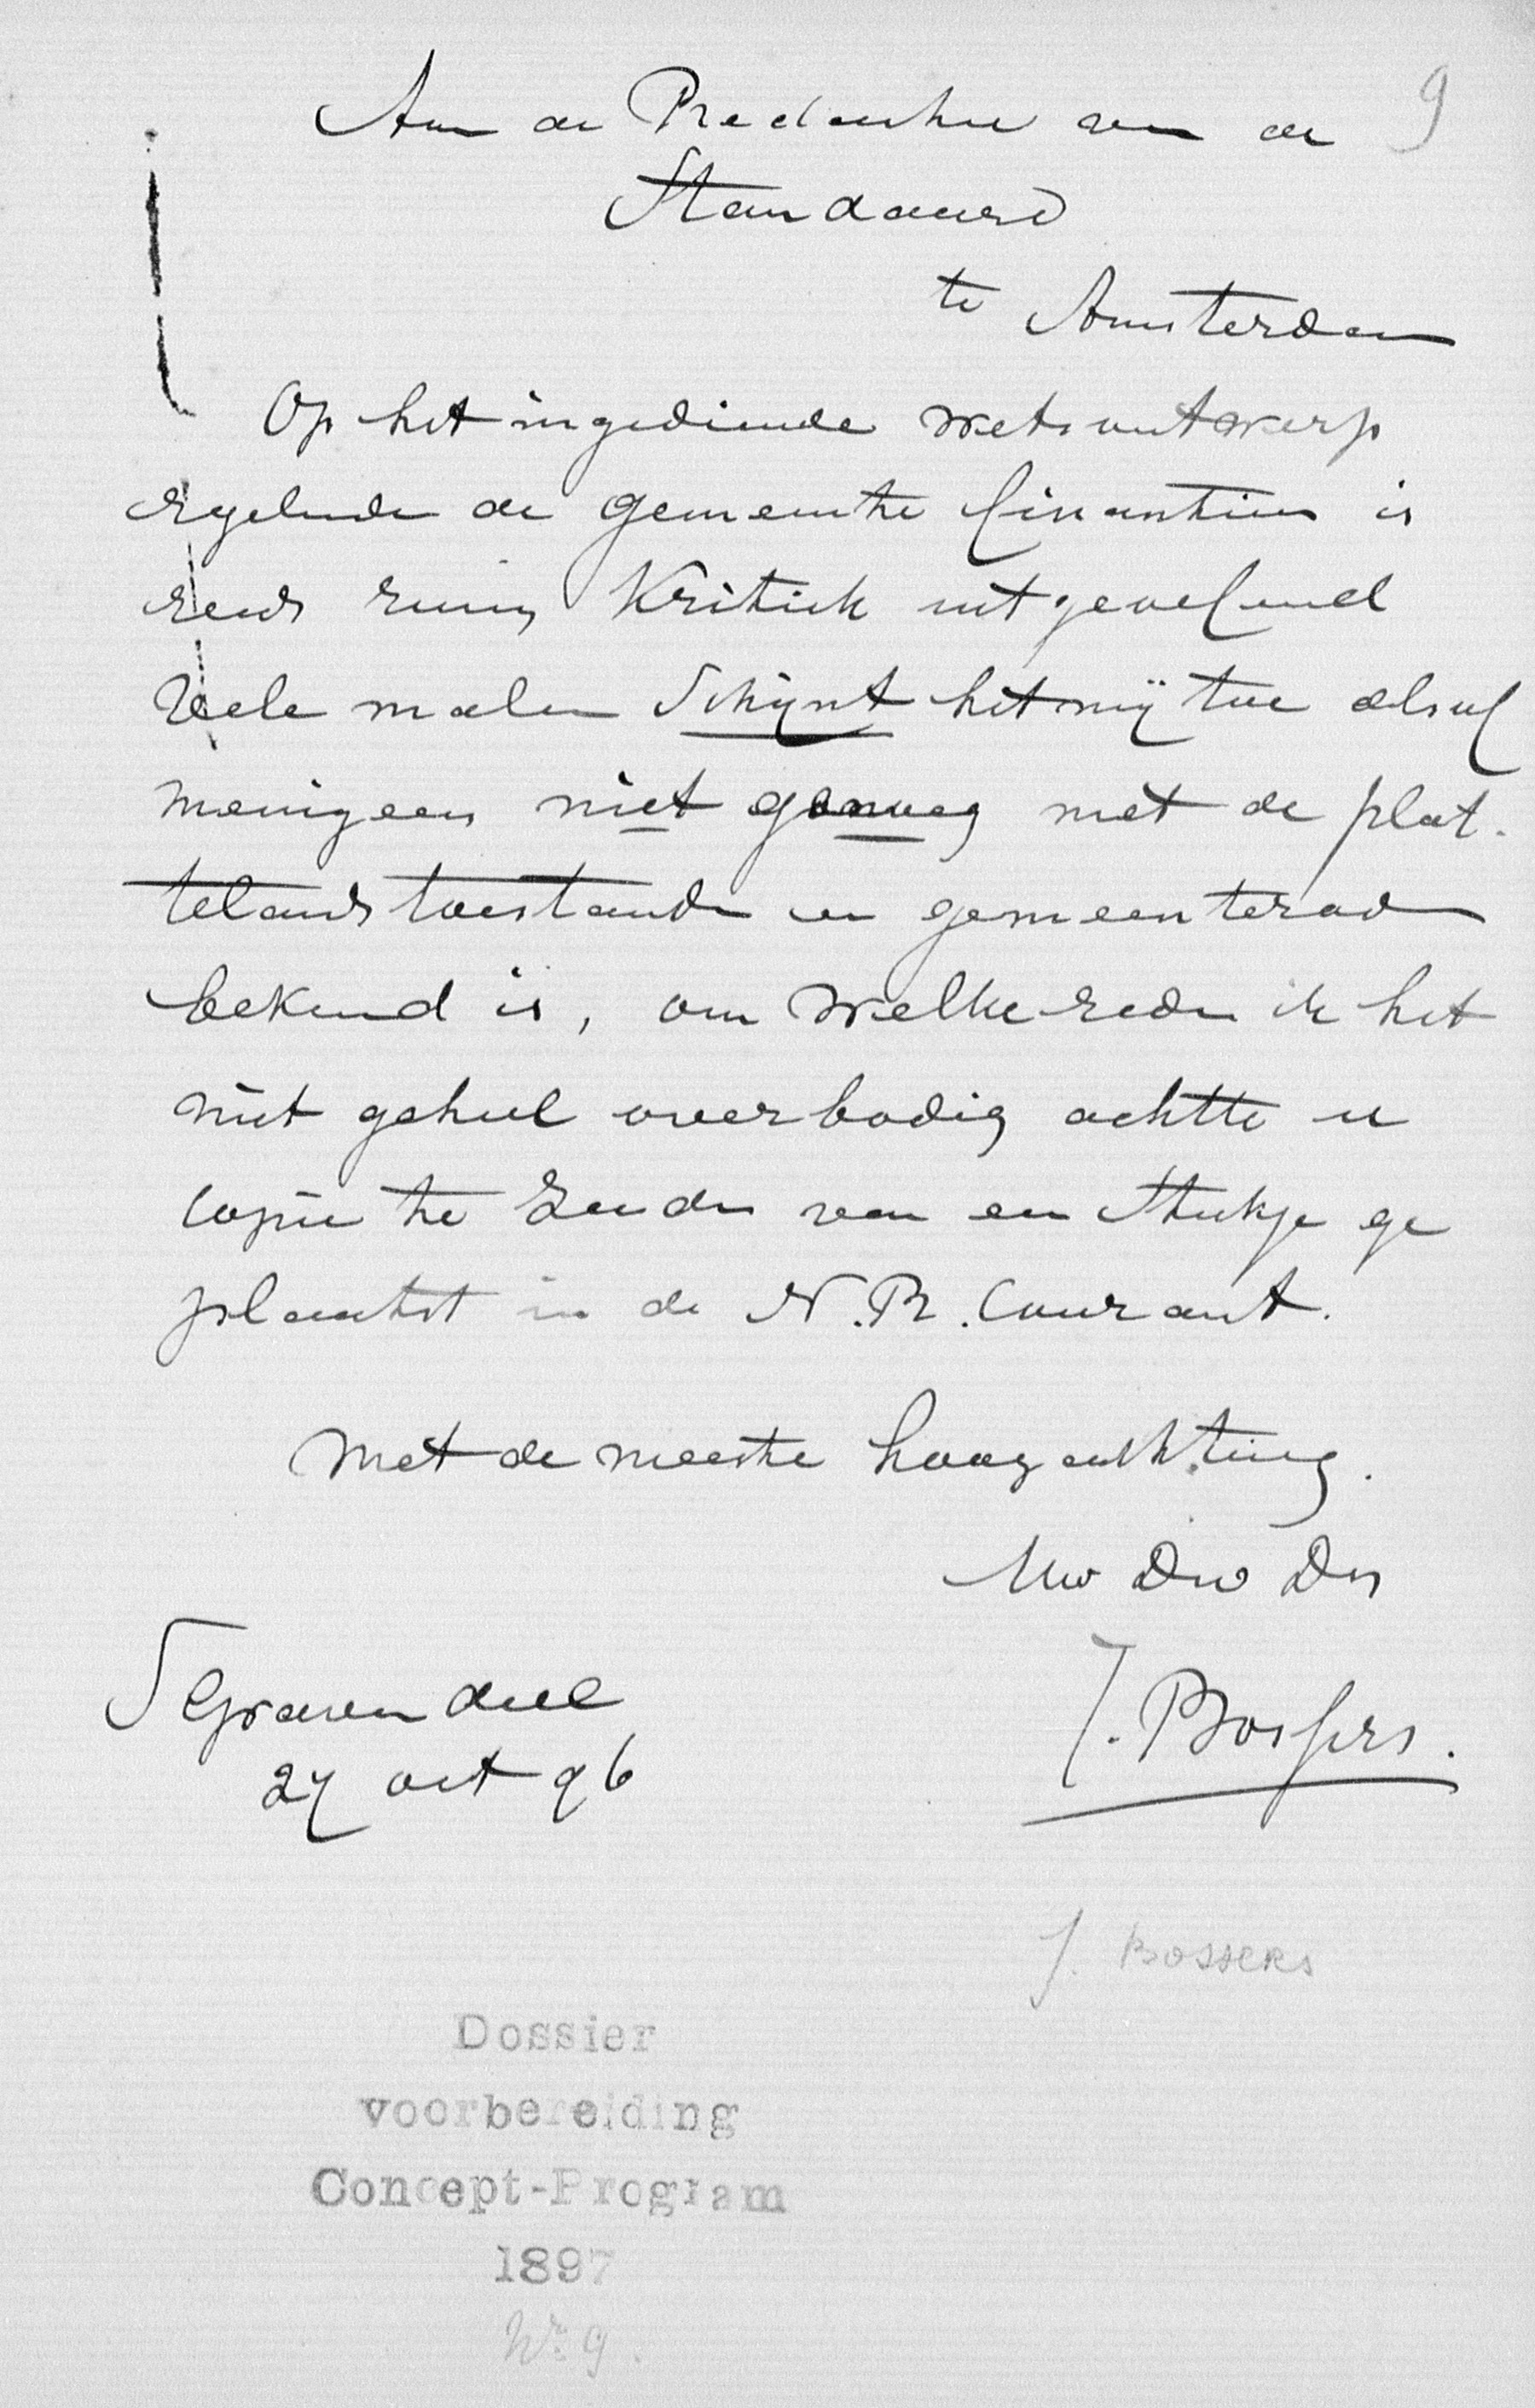 9
Aan de Redactie van de
Standaard
te Amsterdam
Op het ingediende wetsontwerp
regelende de gemeente finantien is
reeds ruim Kritiek uitgeoefend
Vele malen Schijnt het mij toe alsof
menigeen niet genoeg met de plat-
telands toestanden en gemeenteraden
bekend is, om welke reden ik het
niet geheel overbodig achtte u
copie te zenden van een stukje ge
plaatst in de N.R. Courant.
Met de meeste hoogachting.
Uw Dw Dr
J. Bossers.
S Gravendeel
27 oct 96
J. Bossers
Dossier
voorbereiding
Concept-Program
1897
Nr 9.